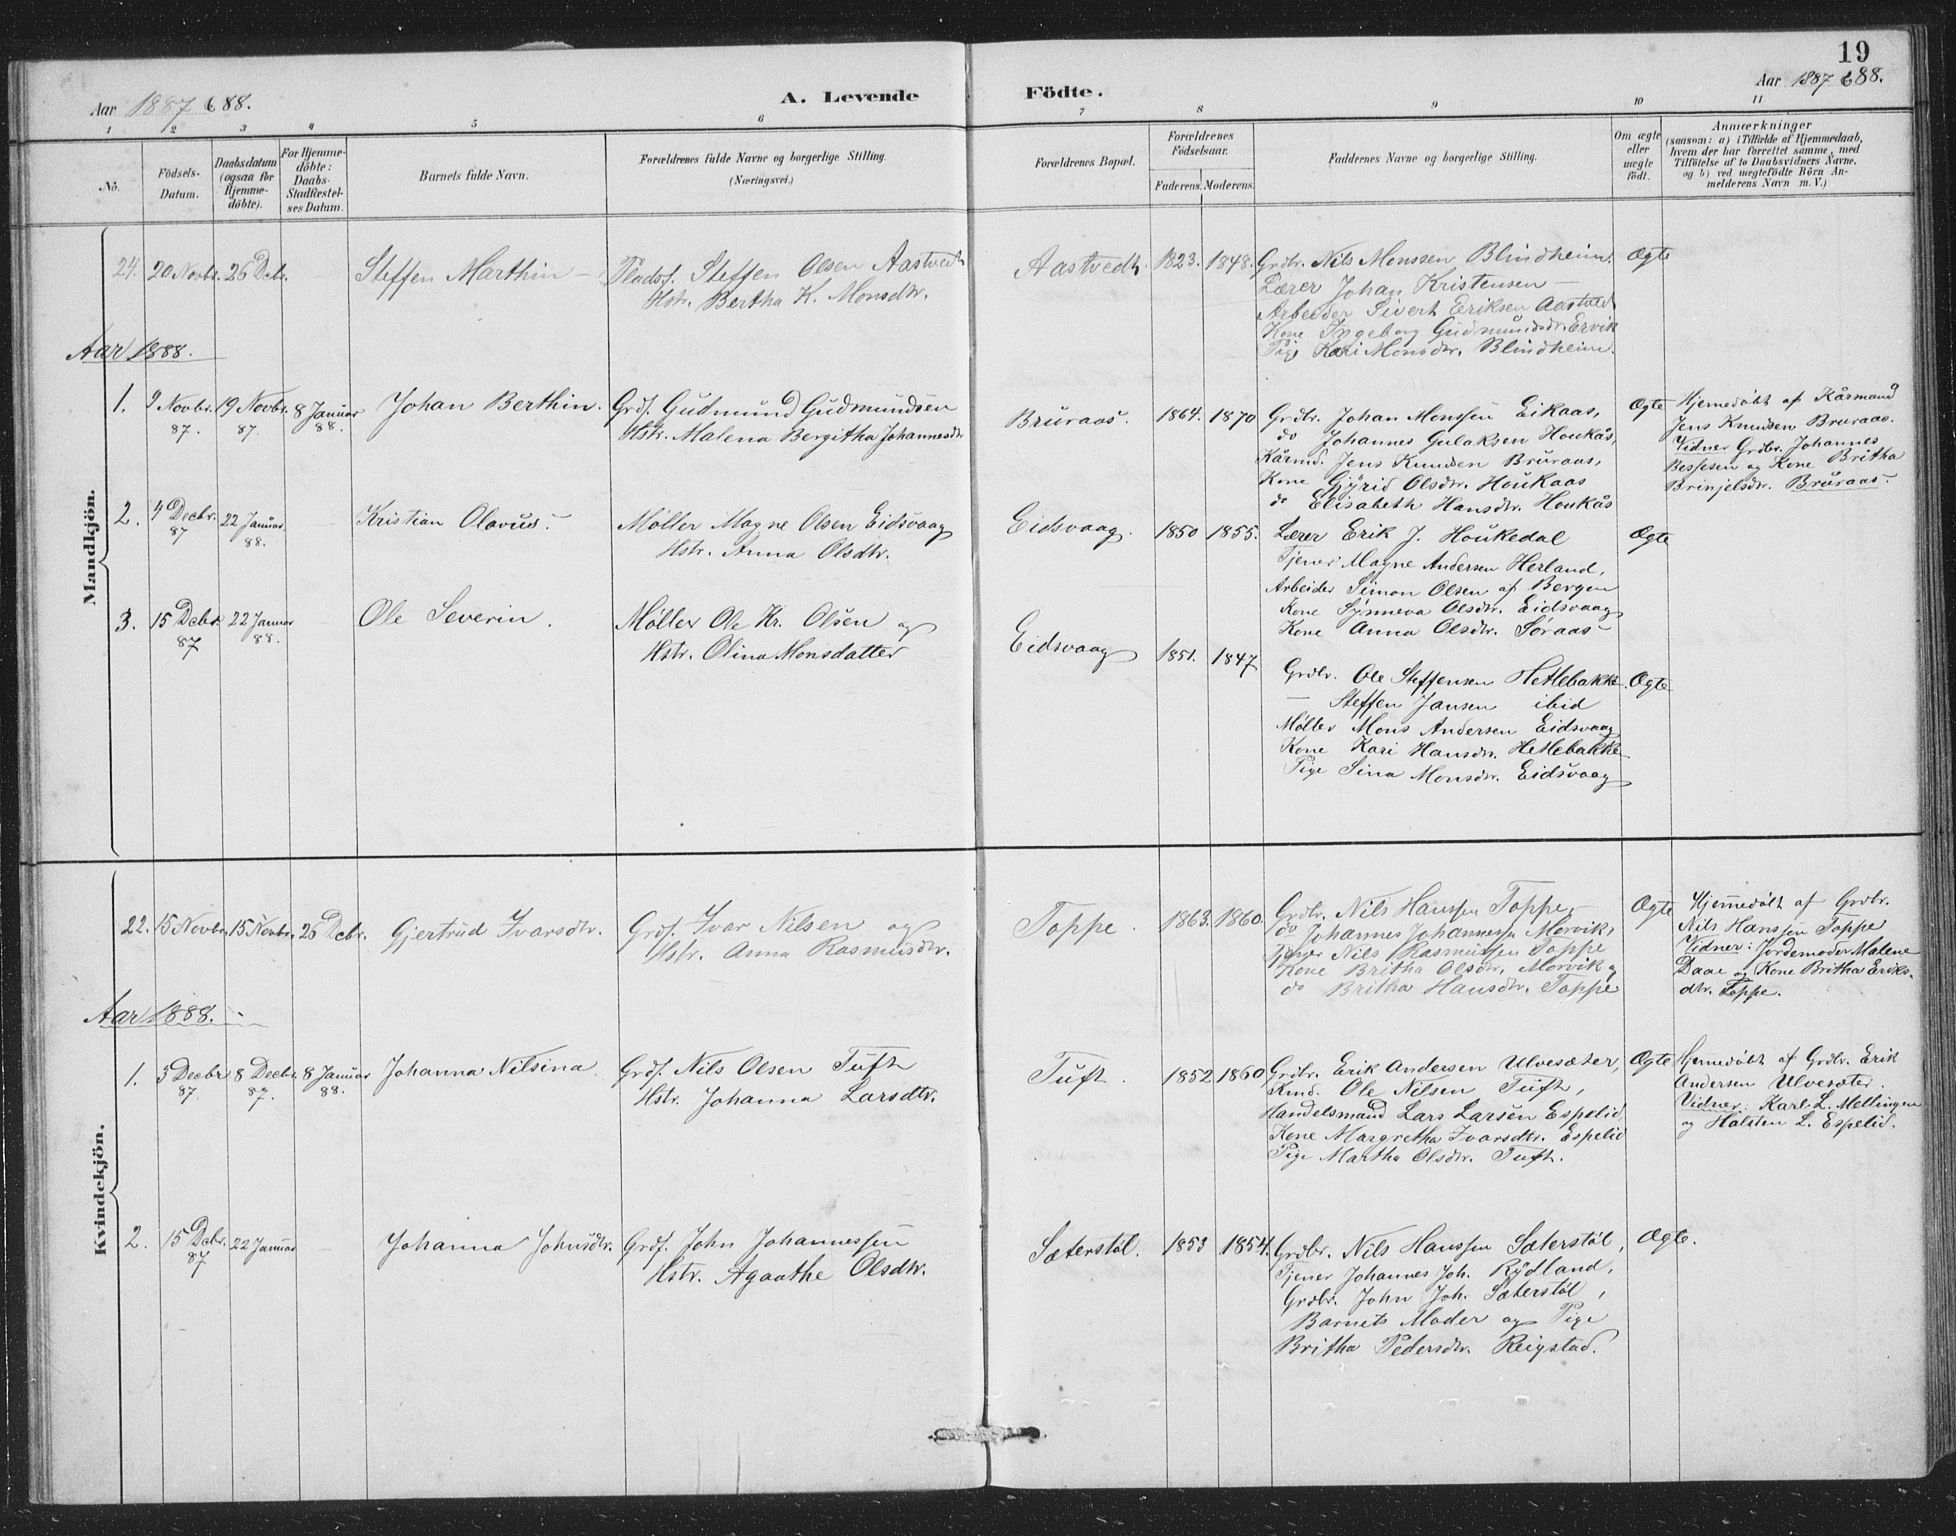 19
Aar 1887 & 88.
A. Levende Födte.
Aar 1887 & 88.
1 2 3 4 5 6 7 8 9 10 11
No.
Födsels-Datum.
Daabsdatum (ogsaa for Hjemme-döbte).
For Hjemme-döbte: Daabs-Stadfæstel-ses Datum.
Barnets fulde Navn.
Forældrenes fulde Navne og borgerlige Stilling.
(Næringsvei.)
Forældrenes Bopæl.
Forældrenes Födselsaar.
Faderens. Moderens.
Faddernes Navne og borgerlige Stilling.
Om ægte eller uægte födt.
Anmærkninger
(saasom: a) i Tilfælde af Hjemmedaab,
hvem der har forrettet samme, med
Tilföielse af to Daabsvidners Navne.
og b) ved uægtefödte Börn An-
melderens Navn m. V.)
Mandkjön.
24. 20 Novbr. 26 Dcb. — Steffen Marthin — Pladsf. Steffen Olsen Aastvedt
Hstr. Bertha K. Monsdtr.
Aastvedt. 1823. 1848. Grdbr. Nils Monssen Blindheim. Ægte
Lærer Johan Kristensen —
Arbeider Sivert Eriksen Aastved
Kone Ingeborg Gudmundsdr. Ervik
Pige Kari Monsdtr. Blindheim.
Aar 1888.
1. 9 Novbr. 87. 19 Novbr. 87. 8 Januar 88. Johan Berthin. Grdf. Gudmund Gudmundsen
Hstr. Malena Bergitha Johannesdtr
Bruraas. 1864. 1870 Grdbr. Johan Monssen Eikaas, Ægte
do Johannes Gulaksen Houkås,
Kårmd. Jens Knudsen Bruraas,
Kone Gjyrid Olsdtr. Houkaas
do Elisabeth Hansdtr. Houkås
Hjemedöbt af Kårmand
Jens Knudsen Bruraas.
Vidner Grdbr. Johannes
Bessesen og Kone Britha
Brinjelsdtr. Bruraas.
2. 4 Decbr. 87 22 Januar. 88. — Kristian Olavus. Møller Magne Olsen Eidsvaag
Hstr. Anna Olsdtr.
Eidsvaag. 1850 1855. Lærer Erik J. Houkedal Ægte
Tjener Magne Andersen Herland,
Arbeider Simon Olsen af Bergen
Kone Synneva Olsdtr. Eidsvaag
Kone Anna Olsdtr. Søraas
3. 15 Dcbr. 87 22 Januar 88. — Ole Severin. Møller Ole Kr. Olsen og
Hstr. Olina Monsdatter
Eidsvaag 1851. 1847 Grdbr. Ole Steffensen Hetlebakke. Ægte
— Steffen Jansen ibid
Møller Mons Andersen Eidsvaag
Kone Kari Hansdtr. Hetlebakke
Pige Sina Monsdtr. Eidsvaag
Kvindekjön.
22. 15 Novbr. 15 Novbr. 26 Dcbr. Gjertrud Ivarsdtr. Grdf. Ivar Nilsen og
Hstr. Anna Rasmusdtr.
Toppe. 1863. 1860. Grdbr. Nils Hanssen Toppe Ægte
do Johannes Johannessen Morvik,
Tjener Nils Rasmussen Toppe
Kone Britha Olsdtr. Morvik og
do Britha Hansdtr. Toppe
Hjemedöbt af Grdbr.
Nils Hanssen Toppe
Vidner: Jordemoder Malene
Daae og Kone Britha Eriks-
dtr. Toppe.
Aar 1888.
1. 3 Decbr 87. 8 Decbr. 87. 8 Januar 88. Johanna Nilsina Grdf. Nils Olsen Tuft
Hstr. Johanna Larsdtr.
Tuft. 1852 1860 Grdbr. Erik Andersen Ulvesæter, Ægte
Kmd. Ole Nilsen Tuft,
Handelsmand Lars Larsen Espelid
Kone Margretha Ivarsdtr. Espelid
Pige Martha Olsdtr. Tuft.
Hjemedöbt af Grdbr. Erik
Andersen Ulvesæter.
Vidner: Karl L. Mellingen
og Halsten L. Espelid.
2. 15 Dcbr. 87 22 Januar — Johanna Johnsdtr. Grdf. John Johannessen
Hstr. Agaathe Olsdtr.
Sæterstøl. 1853 1854. Grdbr. Nils Hanssen Sæterstøl, Ægte.
Tjener Johannes Joh. Rydland,
Grdbr. John Joh. Sæterstøl,
Barnets Moder og Pige
Britha Pedersdtr. Reigstad.